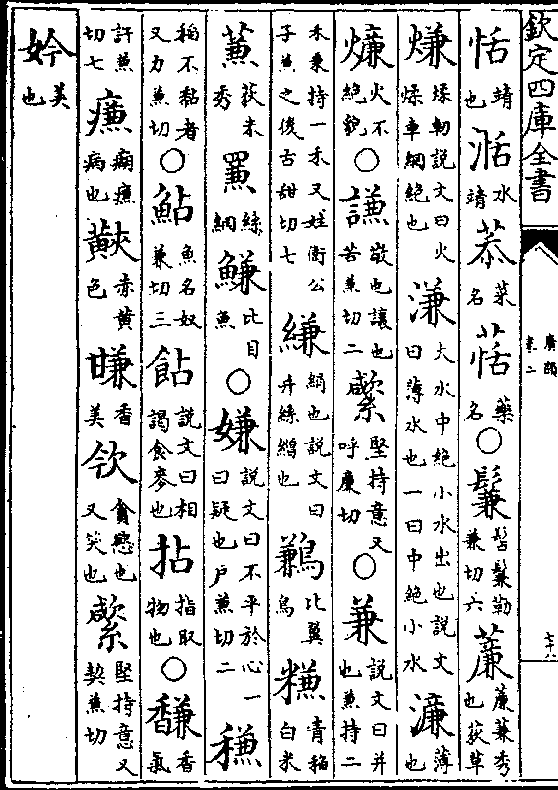 欽定四庫全書
廣韻
卷二
七十八
恬靖也湉水靖菾菜名𦧡藥名○鬑髻鬑勒兼切六薕薕蒹秀也荻草
熑㷮軔說文曰火煣車網絕也溓大水中絕小水出也說文曰薄水也一曰中絕小水濂薄也
燫火不絕貌○謙敬也讓也苦兼切二䌠堅持意又呼廉切○兼說文曰并也兼持二
禾秉持一禾又姓衛公子兼之後古甜切七縑絹也說文曰并絲繒也鶼比翼鳥䊠青稻白米
蒹荻未秀絲網鰜比目魚○嫌說文曰不平於心一曰疑也戶兼切二稴
稻不黏者又力兼切○鮎魚名奴兼切三䬯說文曰相謁食麥也拈指取物也○馦香氣
許兼切七㾾癎㾾病也䵌赤黃色㽐香美㰹貪慾也又笑也䌠堅持意又契兼切
妗美也